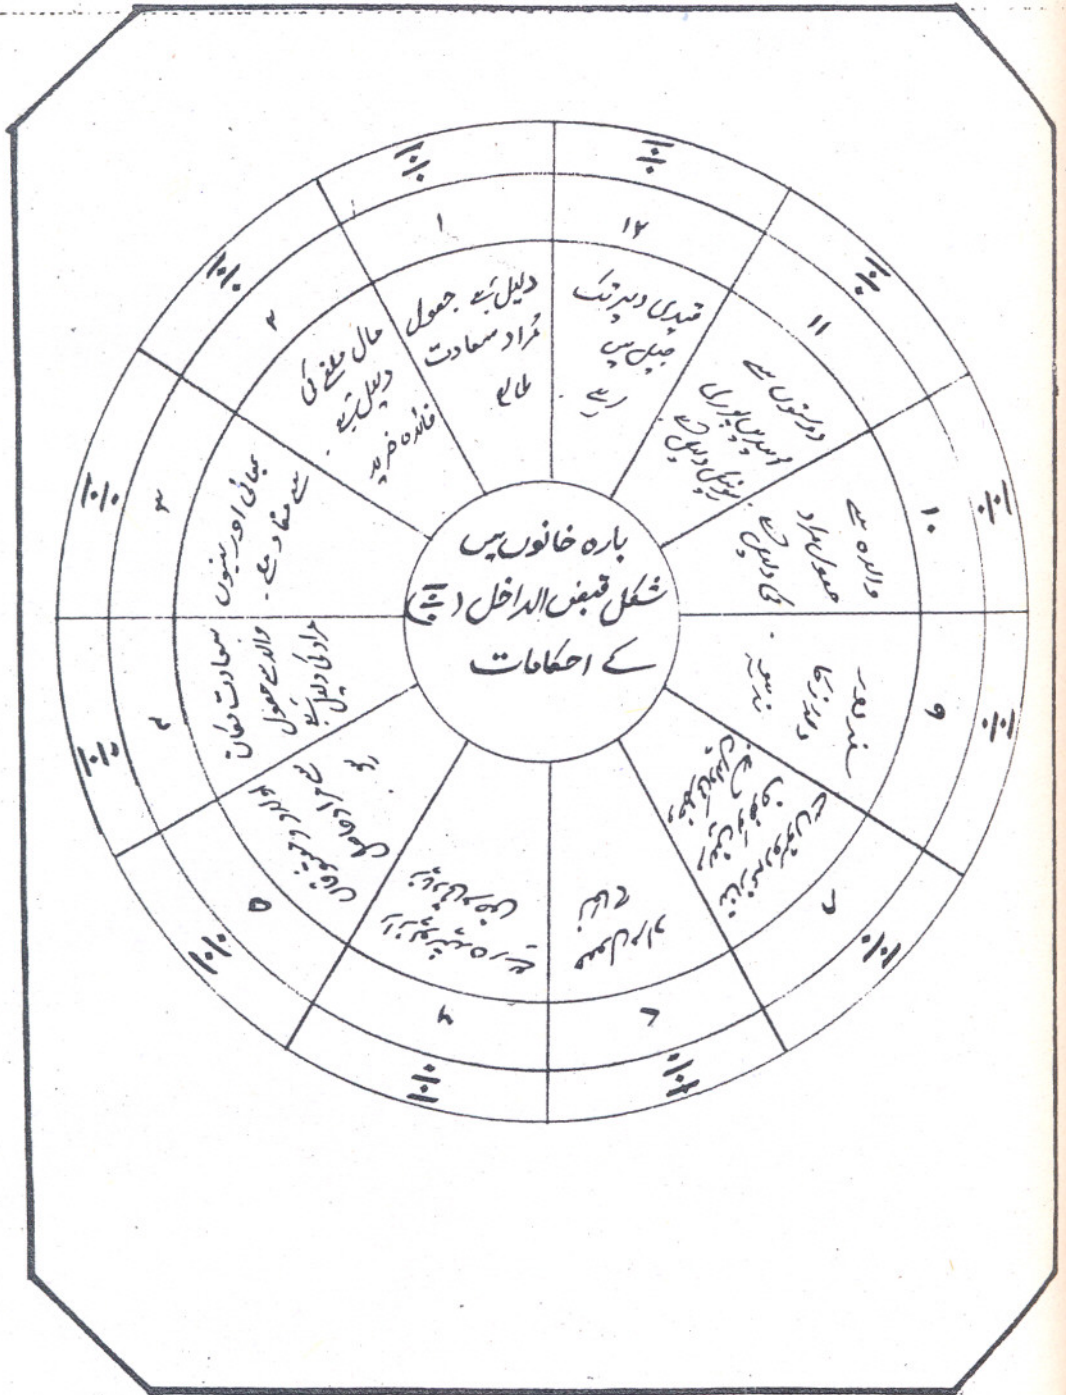 بارہ خانوں میں
شکل قبض الداخل (
کے احکامات
۱
دلیل ہے حصول
مُراد سعادت
طالع
۲
مال ملنے کی
دلیل ہے
فائدہ خرید
۳
بھائی اور بہنوں
سے مفاد ملے
۴
سعادت مکان
والد سے حصول
مراد کی دلیل ہے
۵
سے مراد حاصل
ہو
۶
راز پوشیدہ رہے
۷
حصول مراد
نکاح
۸
۹
سفر
۱۰
والدہ سے
حصول مراد
کی دلیل ہے
۱۱
دوستوں سے
امیدیں پوری
ہونیکی دلیل ہے
۱۲
قیدی دیر تک
جیل میں
رہے